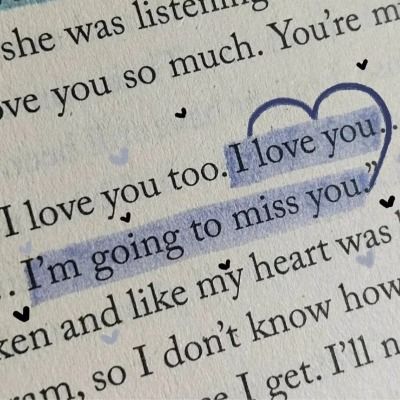 she was listening
ove you so much. You're m
I love you too. I love you..
.. I'm going to miss you."
ken and like my heart was
ram, so I don't know how
I get. I'll n